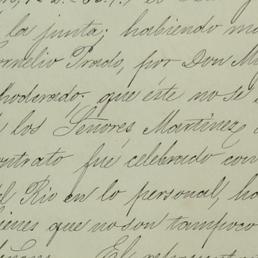 la junta; habiendo
Cornelio Prado, por Don
apoderado, que éste no se
los Señores Martinez
contrato fué celebrado con
el Rio en lo personal, ha
bienes que no son tampoco
El